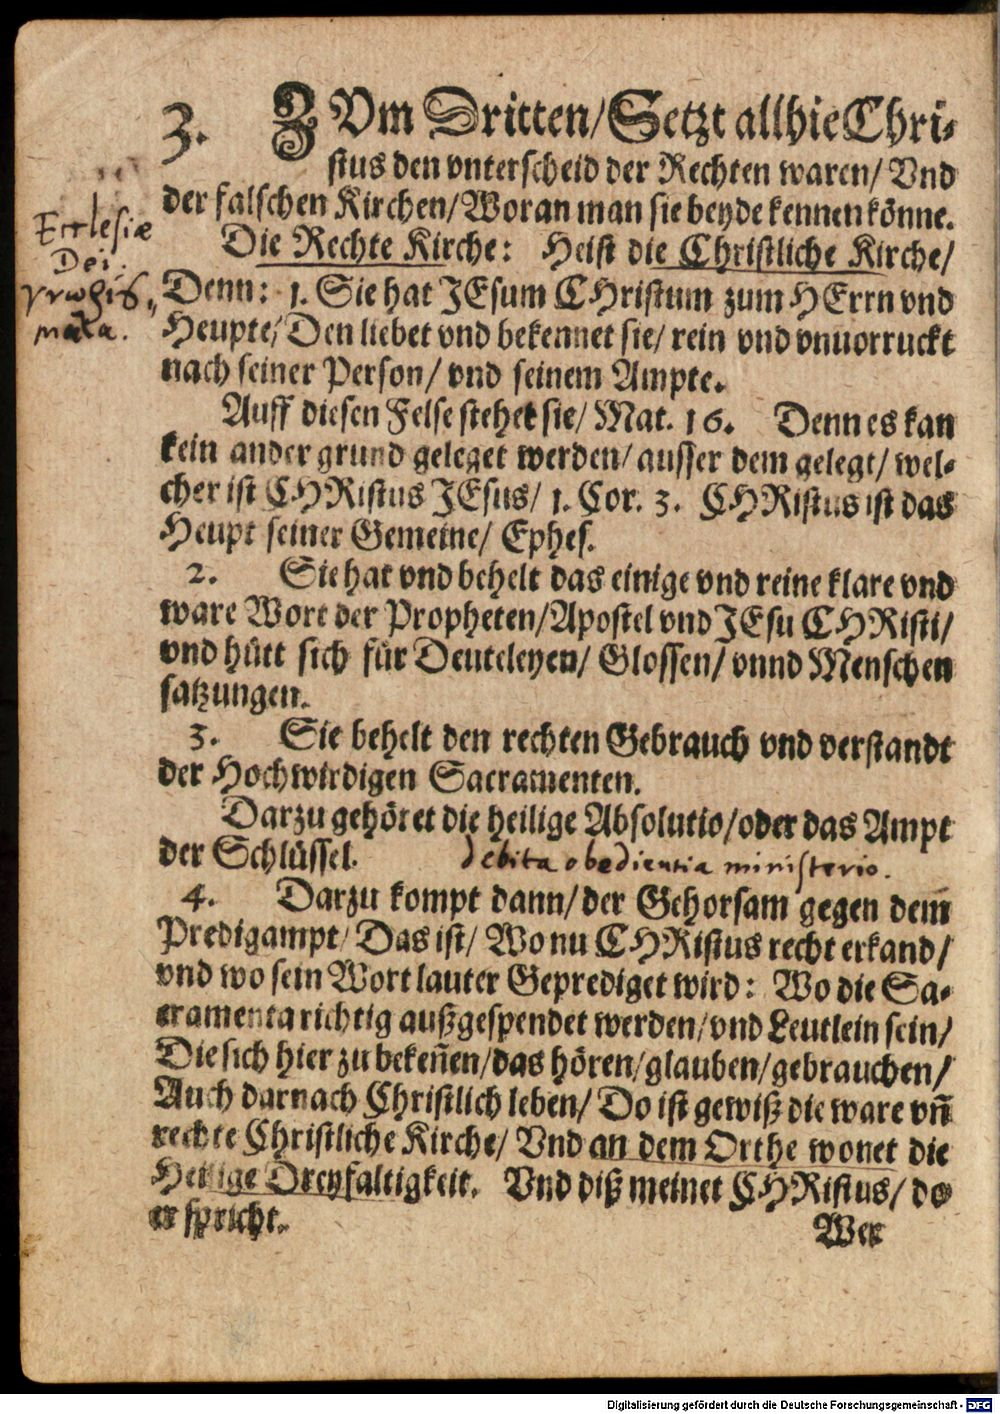 3. ZVm Dritten/ Setzt allhie Chri-
stus den vnterscheid der Rechten waren/ Vnd
der falschen Kirchen/ Woran man sie beyde kennen könne.
Ecclesiæ
Dei
γνωρίσ,,
ματα.
Die Rechte Kirche: Heist die Christliche Kirche/
Denn: 1. Sie hat JEsum CHristum zum HErrn vnd
Heupte/ Den liebet vnd bekennet sie/ rein vnd vnuorruckt
nach seiner Person/ vnd seinem Ampte.
Auff diesen Felse stehet sie/ Mat. 16. Denn es kan
kein ander grund geleget werden/ ausser dem gelegt/ wel-
cher ist CHRistus JEsus/ 1. Cor. 3. CHRistus ist das
Heupt seiner Gemeine/ Ephes.
2. Sie hat vnd behelt das einige vnd reine klare vnd
ware Wort der Propheten/ Apostel vnd JEsu CHRisti/
vnd hütt sich für Deuteleyen/ Glossen/ vnnd Menschen
satzungen.
3. Sie behelt den rechten Gebrauch vnd verstandt
der Hochwirdigen Sacramenten.
Darzu gehöret die heilige Absolutio/ oder das Ampt
der Schlüssel.
debita obedientia ministerio.
4. Darzu kompt dann/ der Gehorsam gegen dem
Predigampt/ Das ist/ Wo nu CHRistus recht erkand/
vnd wo sein Wort lauter Geprediget wird: Wo die Sa-
cramenta richtig außgespendet werden/ vnd Leutlein sein/
Die sich hier zu bekeñen/ das hören/ glauben/ gebrauchen/
Auch darnach Christlich leben/ Do ist gewiß die ware vñ
rechte Christliche Kirche/ Vnd an dem Orthe wonet die
Heilige Dreyfaltigkeit. Vnd diß meinet CHRistus/ do
er spricht.
Wer
Digitalisierung gefördert durch die Deutsche Forschungsgemeinschaft - DFG